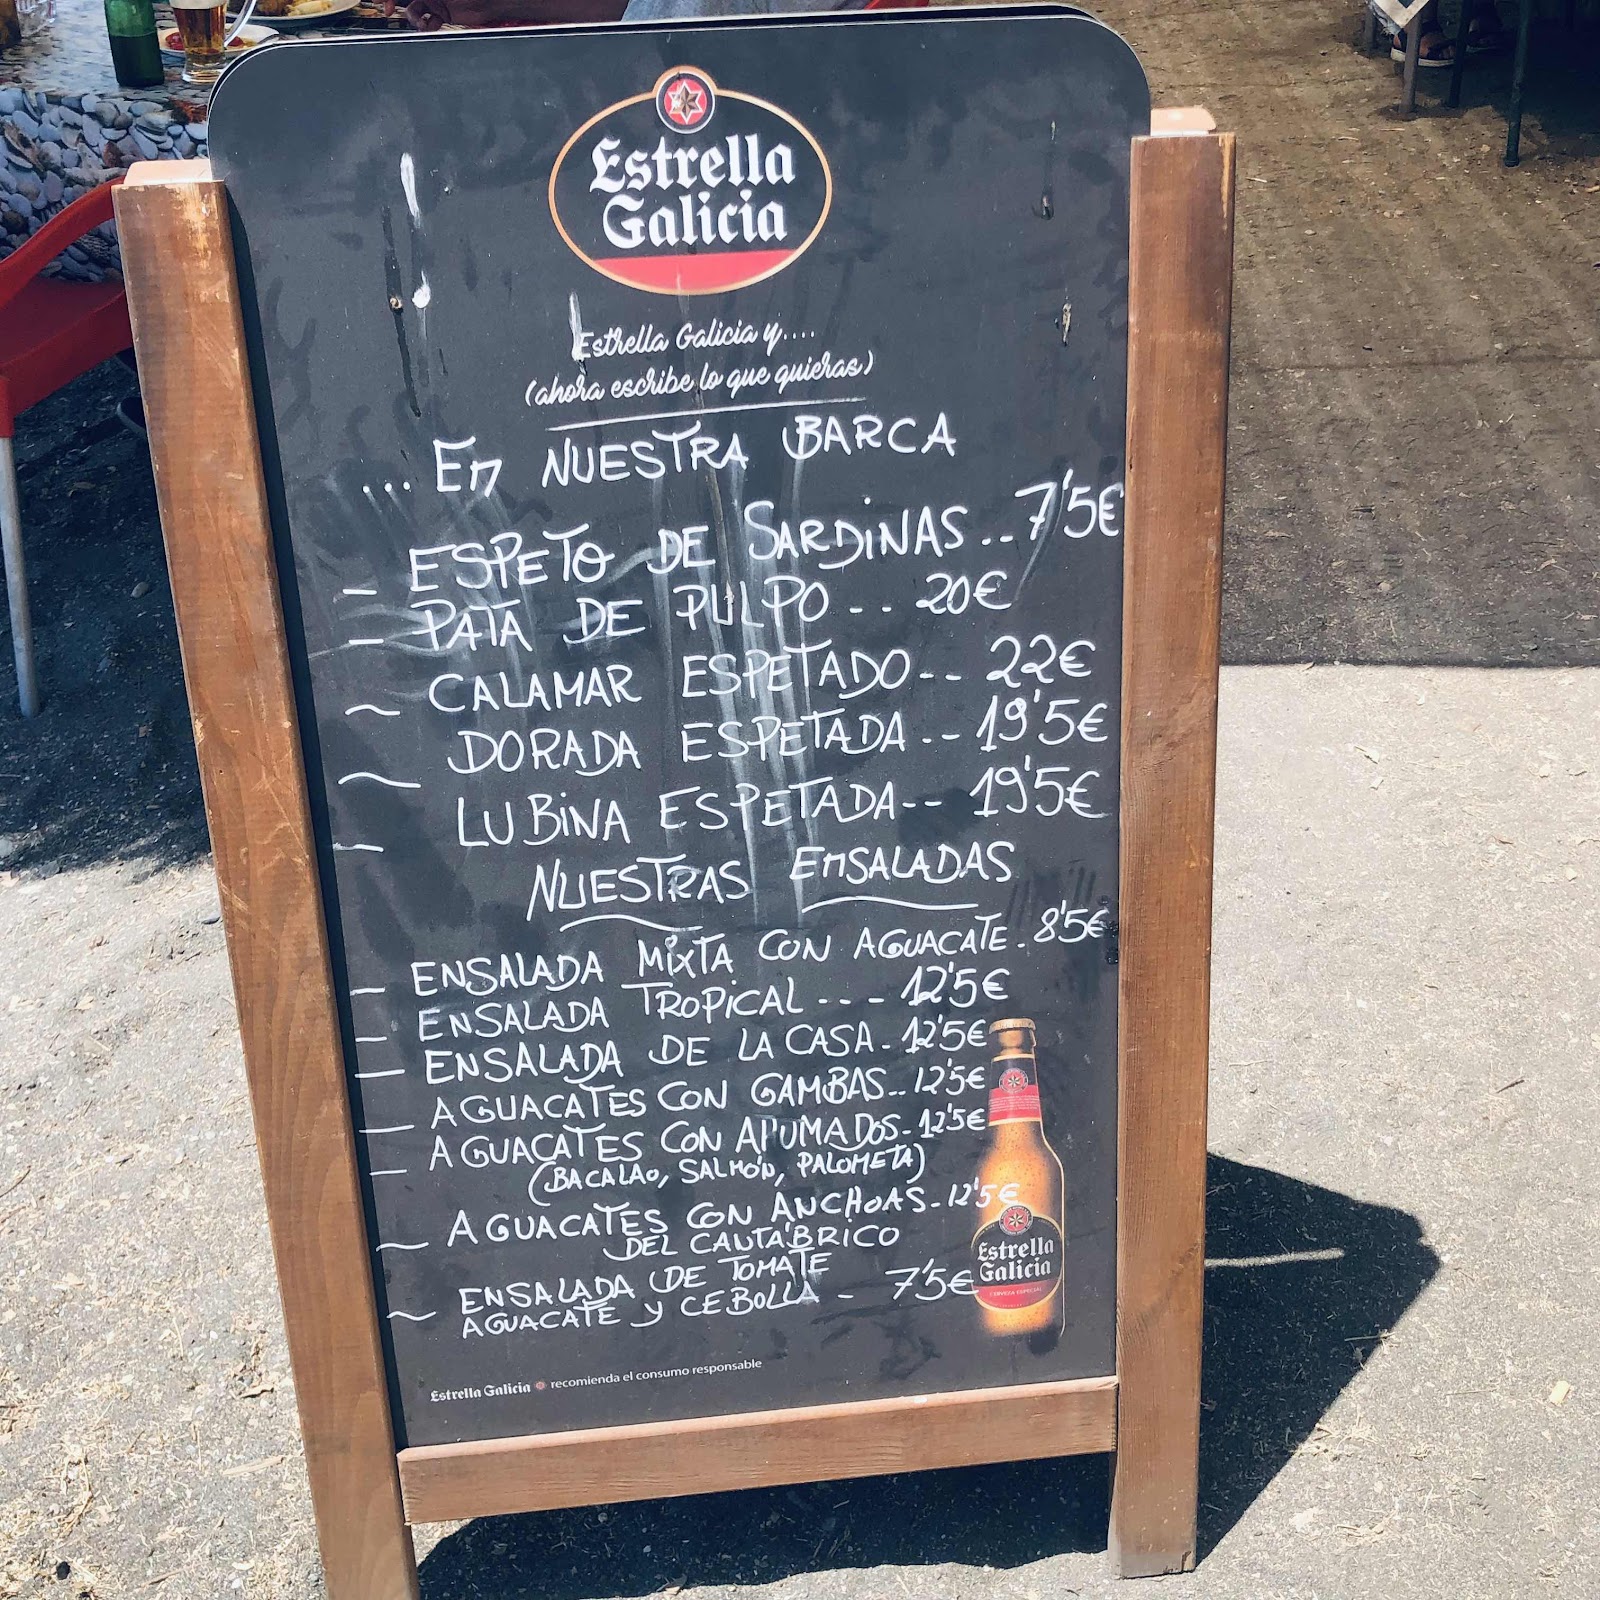 Estrella
Galicia
Estrella Galicia y....
(ahora escribe lo que quieras)
... En NUESTRA BARCA
- ESPETO DE SARDINAS.. 7'5€
- PATA DE PULPO -- 20€
~ CALAMAR ESPETADO-- 22€
~ DORADA ESPETADA-- 19'5€
- LUBINA ESPETADA-- 19'5€
NUESTRAS EnSALADAS
- ENSALADA MIXTA CON AGUACATE. 8'5€
- ENSALADA TROPICAL --- 12'5€
- ENSALADA DE LA CASA. 12'5€
- AGUACATES CON GAMBAS.. 12'5€
- AGUACATES CON AHUMADOS- 12'5€
(BACALAO, SALMÓN, PALOMETA)
~ AGUACATES CON ANCHOAS- 12'5€
DEL CANTÁBRICO
~ ENSALADA DE TOMATE
AGUACATE Y CEBOLLA - 7'5€
Estrella
Galicia
CERVEZA ESPECIAL
Estrella Galicia recomienda el consumo responsable